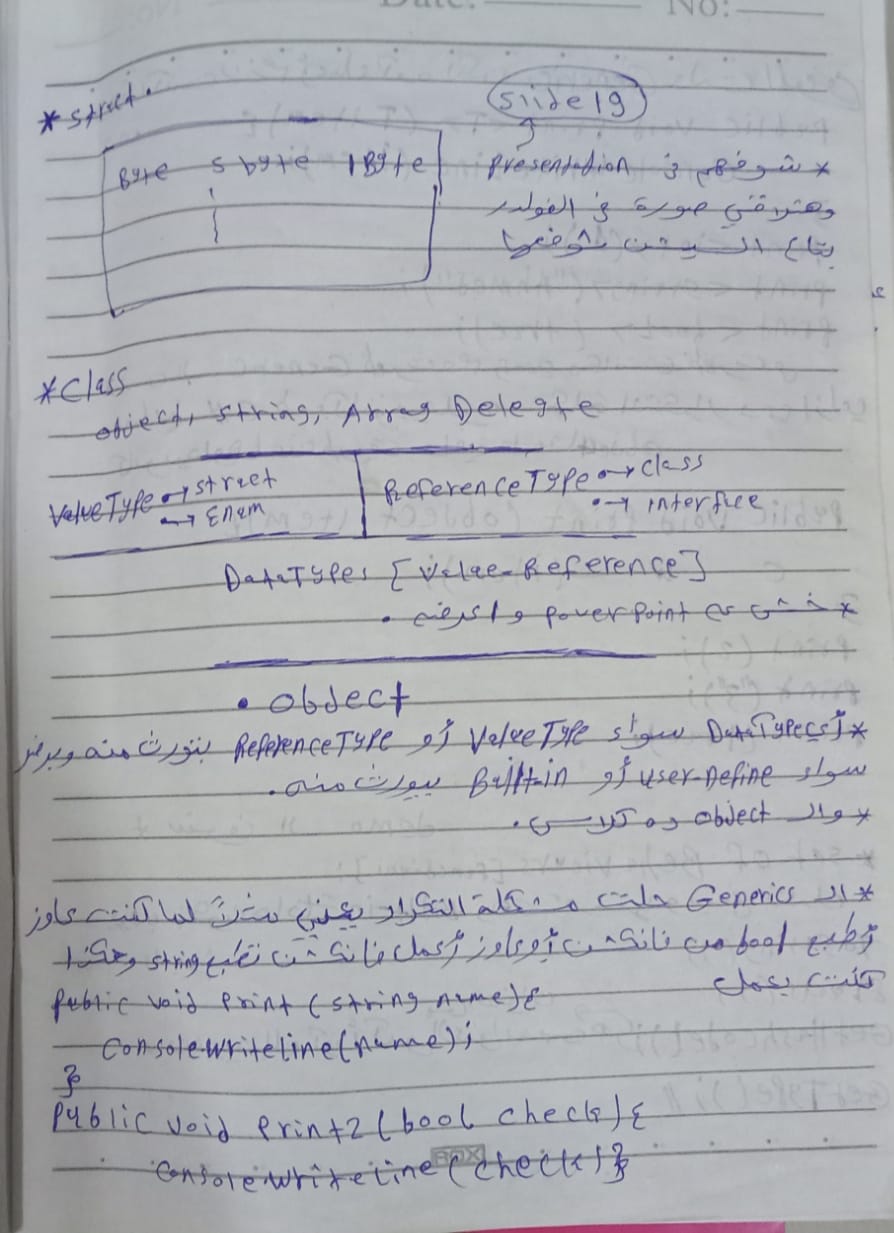 Date: No:
* struct.
slide 19
Byte sbyte 1Byte
* شوفهم في Presentation
وهتلاقي صورة في الفولدر
بتاع السيشن شوفها
*Class
object, string, Array Delegte
ValueType → struct
→ Enam
ReferenceType → class
→ interfuce
DataTypes [Value-Reference]
* خش علي PowerPoint واعرضه.
• object
* أي DataType سواء ValueType أو ReferenceType بتورث منه
سواء user-Define أو Built-in بيورث منه.
* وال object ده كلاس.
* ال Generics حلت مشكلة التكرار يعني مثلاً لما كنت عاوز
أطبع bool من فانكشن أو عاوز أعمل فانكشن تطبع string وهكذا
كنت بعمل
public void Print (string name){
Console.writeline(name);
}
Public void Print2 (bool check){
Console.writeline (check)}